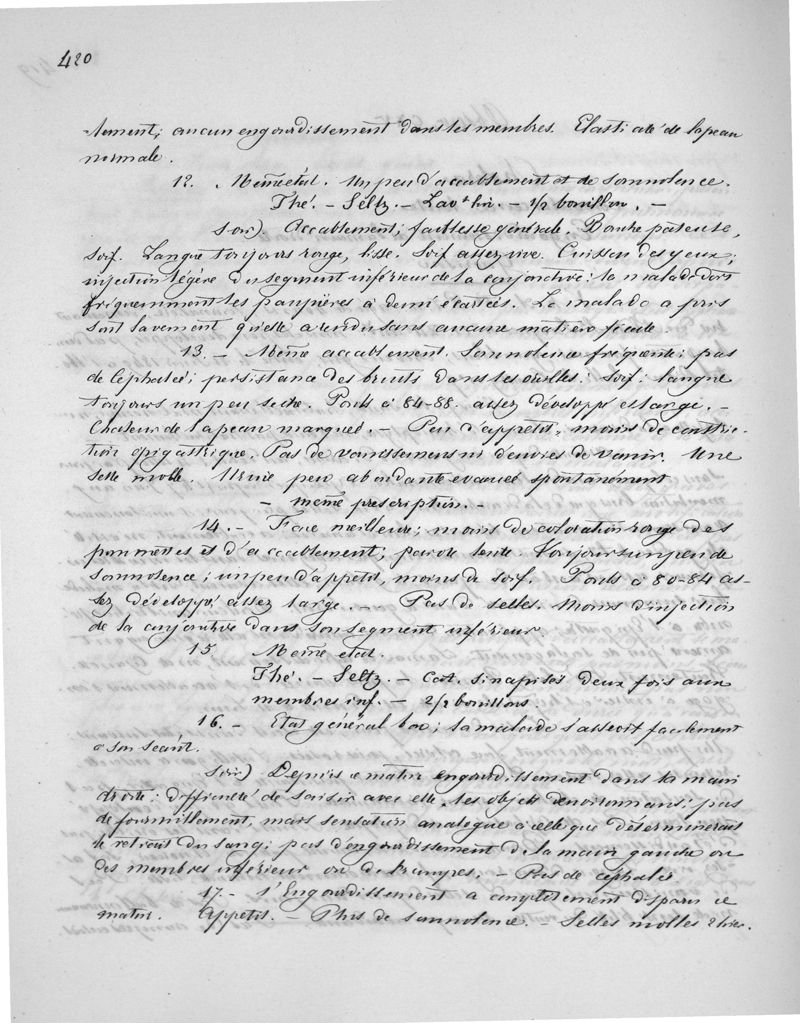 420
tement; aucun engourdissement dans les membres. Elasticité de la peau
normale.
12. Même état. Un peu d'accablement et de somnolence.
Thé. – Seltz. – Lavt lin. – 1/2 bouillon. –
Soir). Accablement; faiblesse générale. Bouche pâteuse,
soif. Langue toujours rouge, lisse. Soif assez vive. Cuisson des yeux;
injection légère du segment inférieur de la conjonctive: la malade dort
fréquemment les paupières à demi écartées. La malade a pris
son lavement qu'elle a rendu sans aucune matière fécale.
13. – Même accablement. Somnolence fréquente; pas
de céphalée; persistance des bruits dans les oreilles. Soif; langue
toujours un peu sèche. Pouls à 84-88. assez développé et large. –
Chaleur de la peau marquée. – Peu d'appétit, moins de constric-
tion épigastrique. Pas de vomissements ni d'envies de vomir. Une
selle molle. Urine peu abondante évacuée spontanément
– même prescription. –
14. – Face meilleure; moins de coloration rouge des
pommettes et d'accablement; parole lente. Toujours un peu de
somnolence; un peu d'appétit, moins de soif. Pouls à 80-84 as-
sez développé, assez large. – Pas de selles. Moins d'injection
de la conjonctive dans son segment inférieur.
15. Même état.
Thé. – Seltz. – Cat. sinapisés deux fois aux
membres inf. – 2/2 bouillons.
16. – Etat général bon; la malade s'asseoit facilement
à son séant.
Soir) Depuis ce matin engourdissement dans la main
droite; difficulté de saisir avec elle les objets environnans; pas
de fourmillement, mais sensation analogue à celle que déterminerait
le retrait du sang; pas d'engourdissement de la main gauche ou
des membres inférieur ou de crampes. – Pas de céphalée
17. – L'Engourdissement a complètement disparu ce
matin. Appétit. – Plus de somnolence. – Selles molles 2 hier.